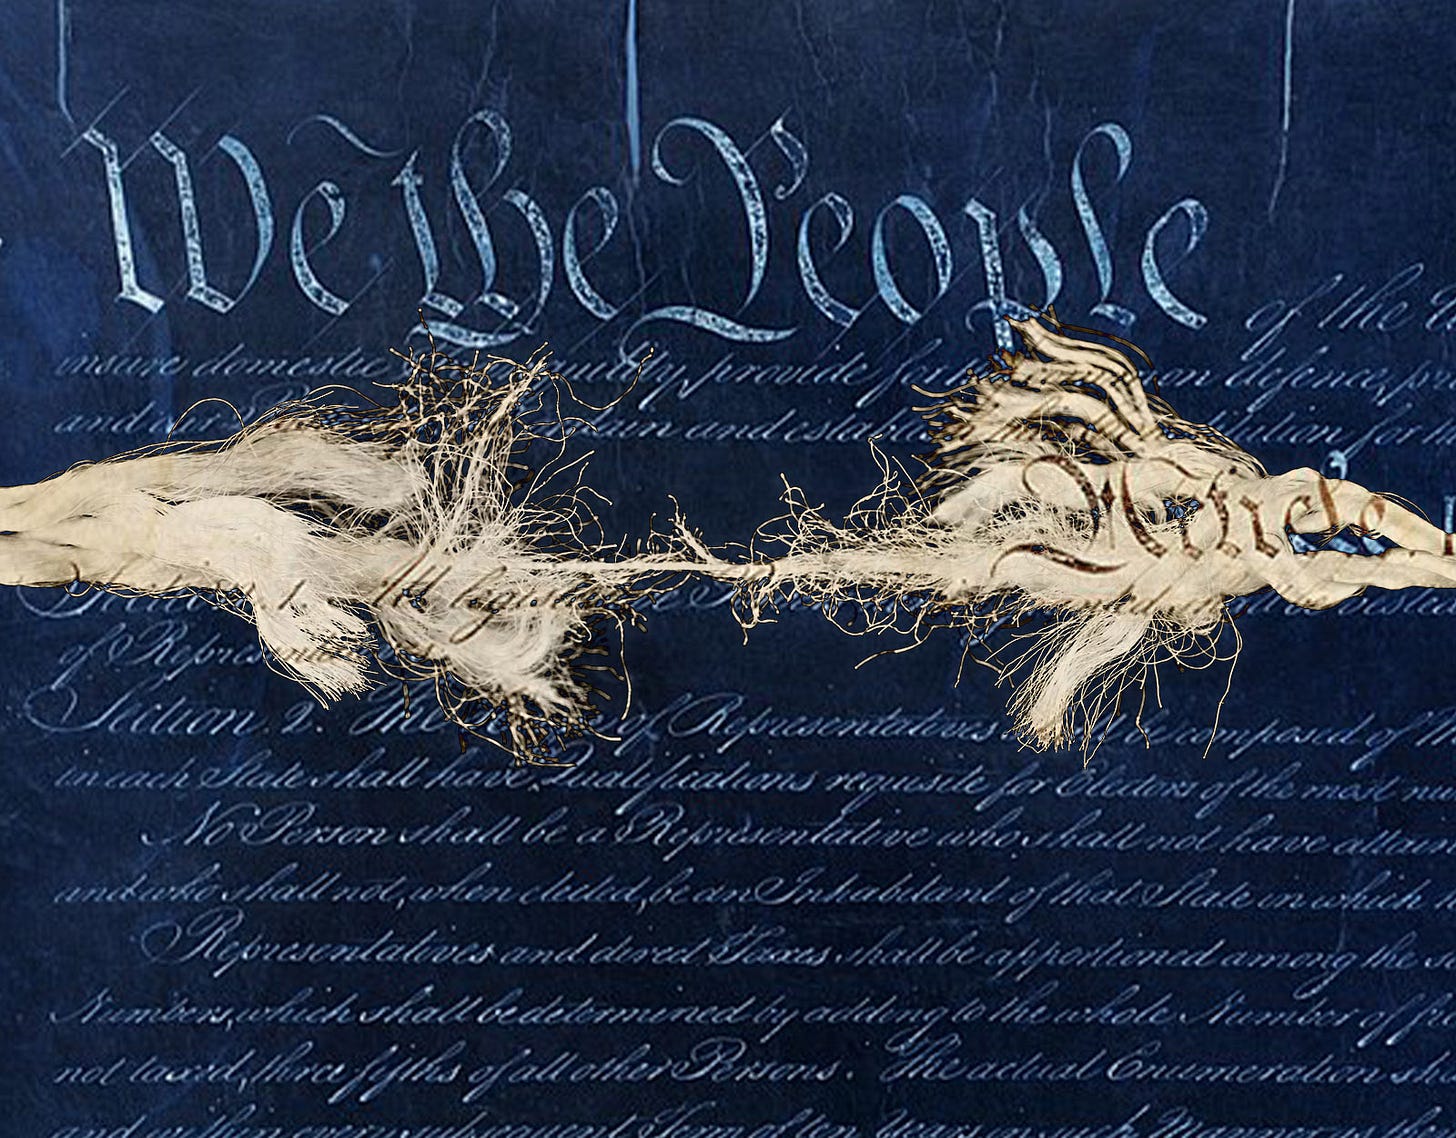 We the People of the
insure domestic provide for defence,
and our and
Article
Section 1. All legis
of Repres
Section 2. The of Representatives composed of
in each State shall have Qualifications requisite for Electors of the most nu
No Person shall be a Representative who shall not have attain
and who shall not, when elected, be an Inhabitant of that State in which
Representatives and direct Taxes shall be apportioned among the
Numbers, which shall be determined by adding to the whole Number of
not taxed, three fifths of all other Persons. The actual Enumeration
and within every subsequent Term of ten Years, in such Manner